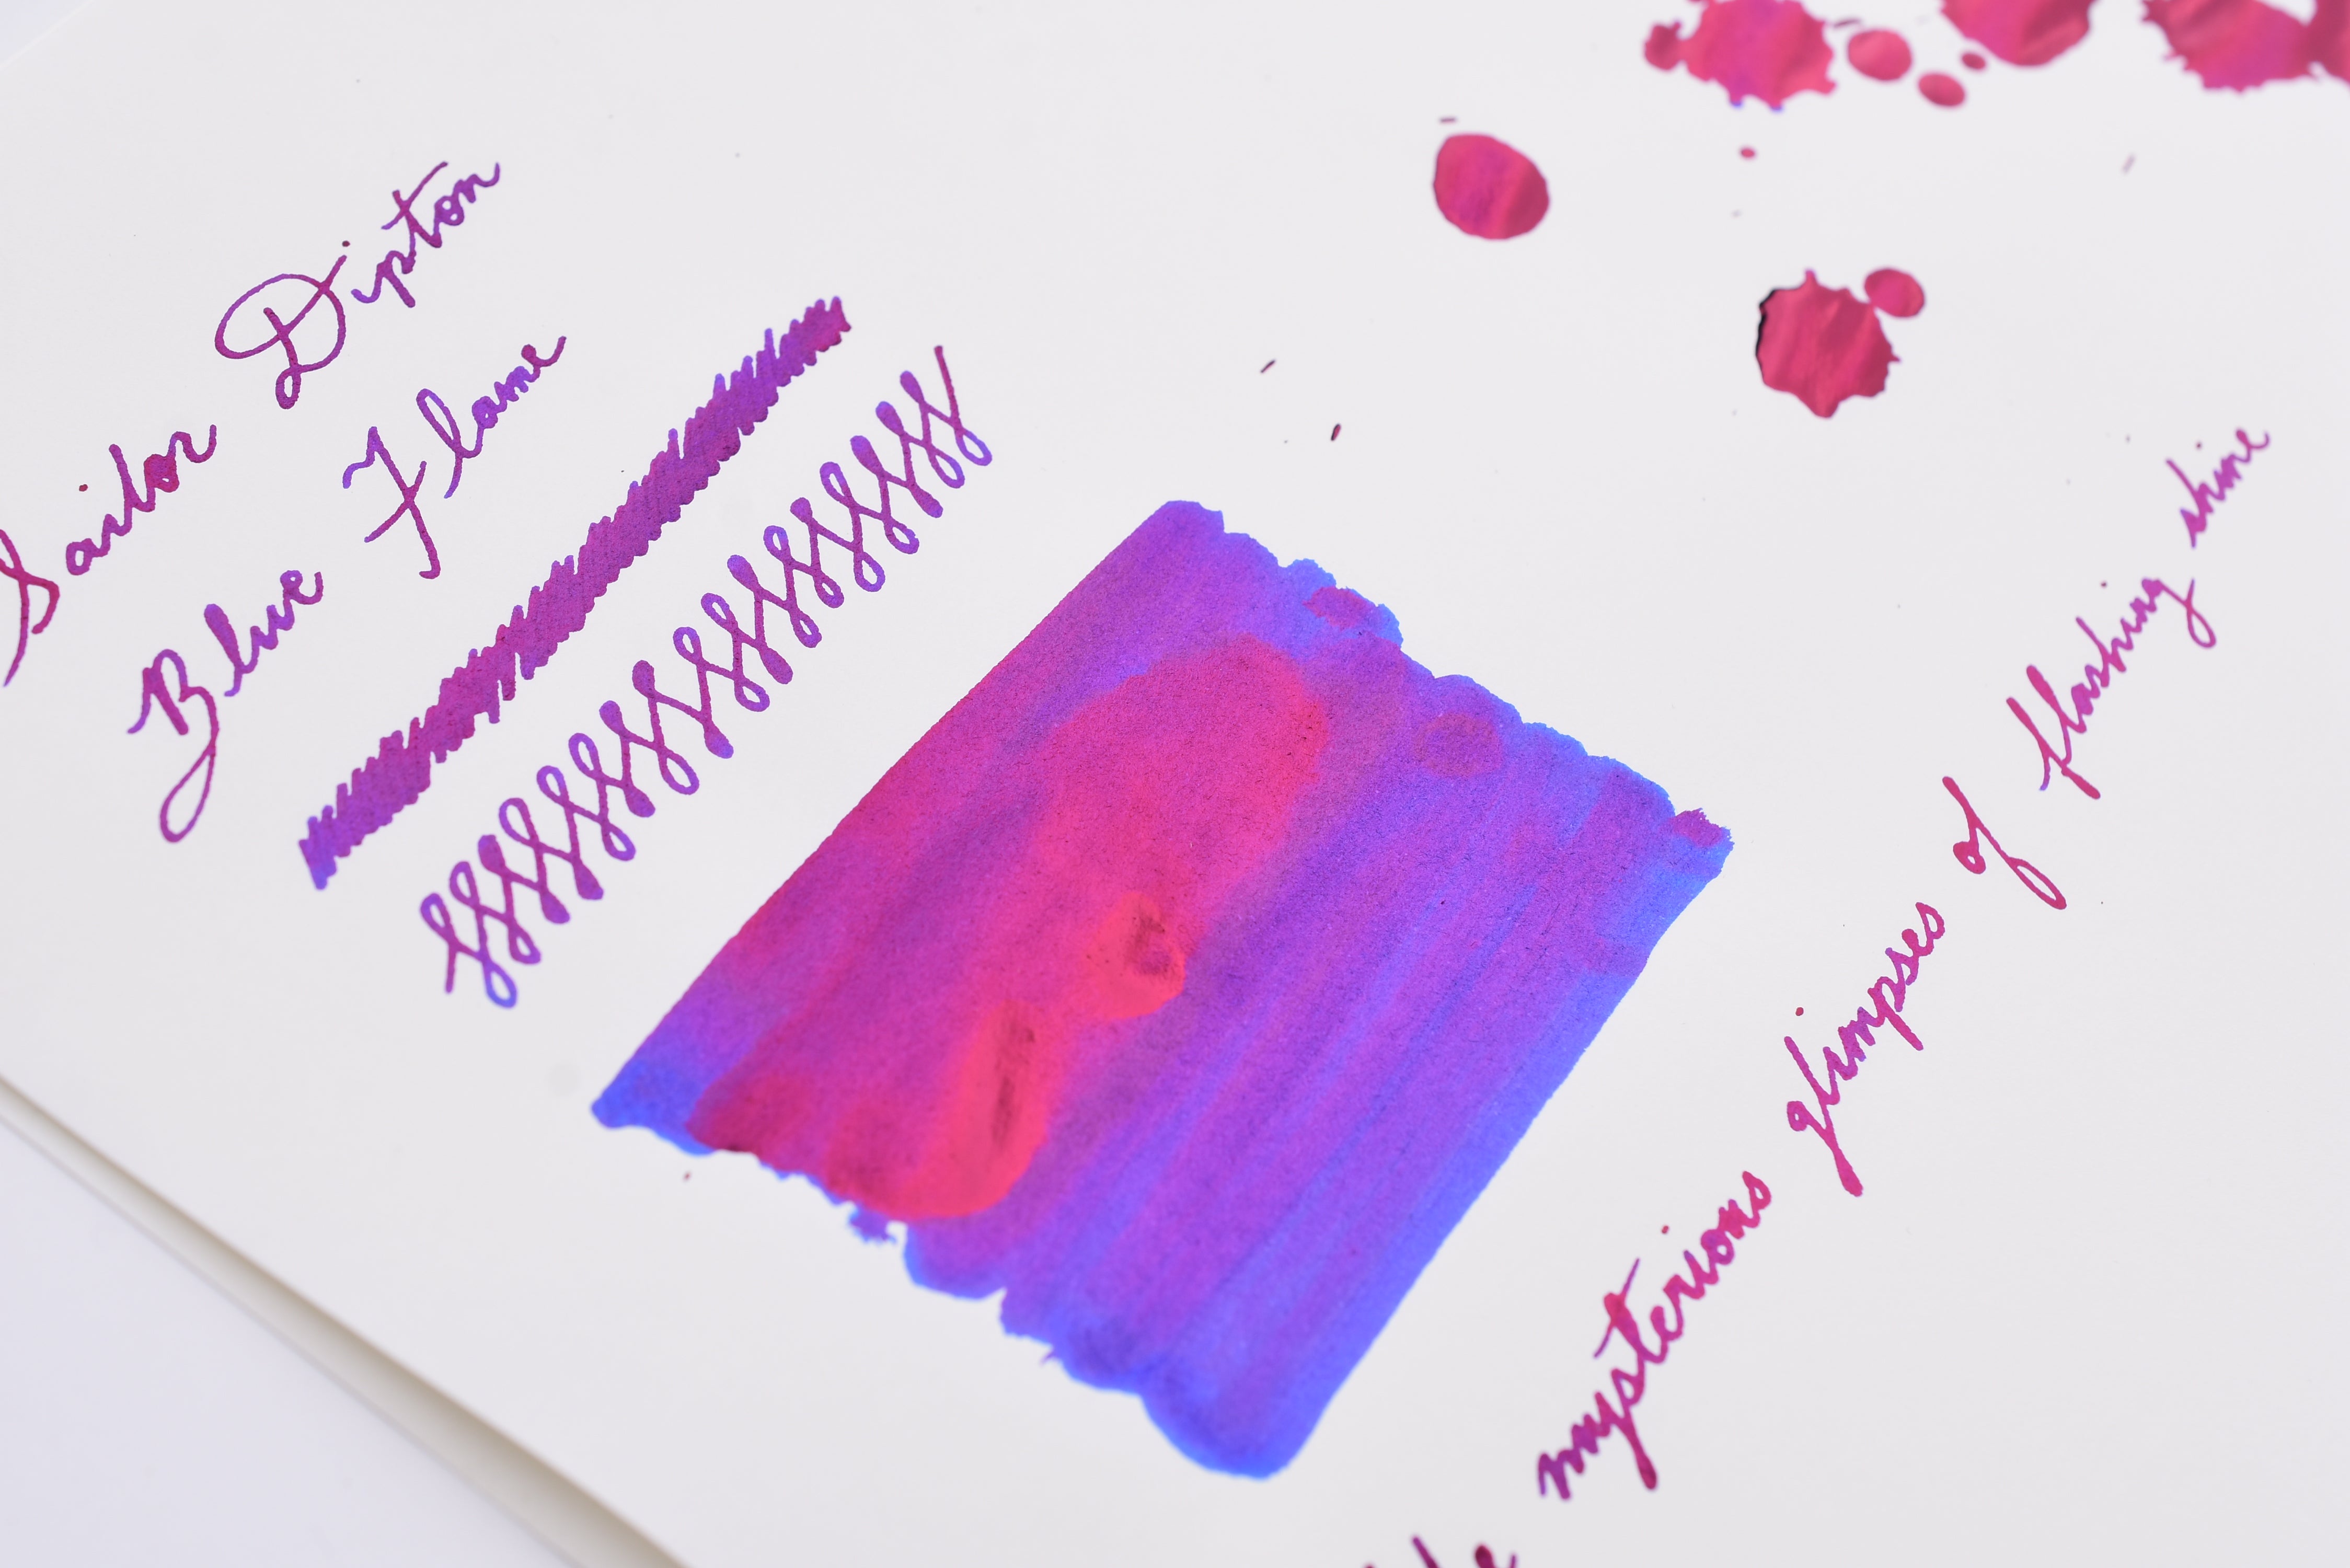 Sailor Dipton
Blue Flame
mysterious glimpses of flashing shine